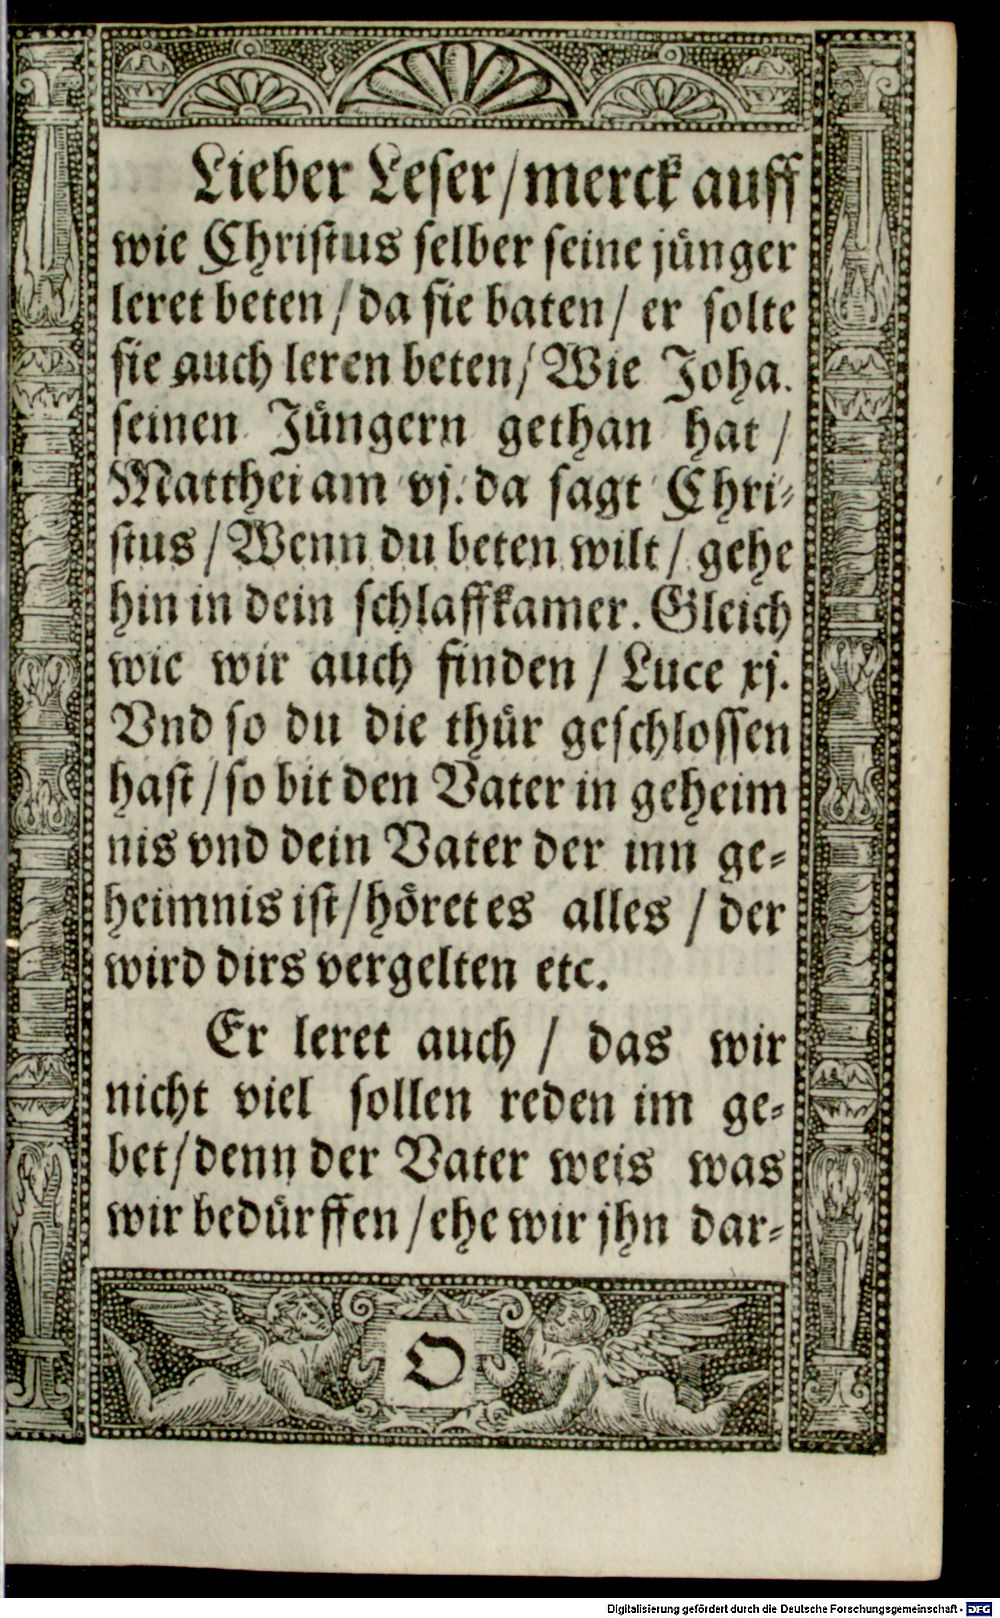 Lieber Leser/merck auff
wie Christus selber seine jünger
leret beten/da sie baten/ er solte
sie auch leren beten/Wie Joha.
seinen Jüngern gethan hat/
Matthei am vj. da sagt Chri⸗
stus/Wenn du beten wilt/gehe
hin in dein schlaffkamer. Gleich
wie wir auch finden/Luce xj.
Vnd so du die thür geschlossen
hast/so bit den Vater in geheim
nis vnd dein Vater der inn ge⸗
heimnis ist/höret es alles/der
wird dirs vergelten etc.
Er leret auch/das wir
nicht viel sollen reden im ge⸗
bet/denn der Vater weis was
wir bedürffen/ehe wir jhn dar⸗
O
Digitalisierung gefördert durch die Deutsche Forschungsgemeinschaft - DFG